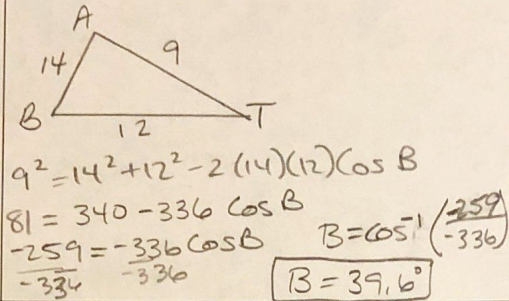 A
14
9
B
T
12
9² = 14² + 12² - 2 (14)(12) Cos B
81 = 340 - 336 Cos B
-259 = -336 Cos B
-336 -336
B = cos⁻¹ (-259/-336)
B = 39.6°